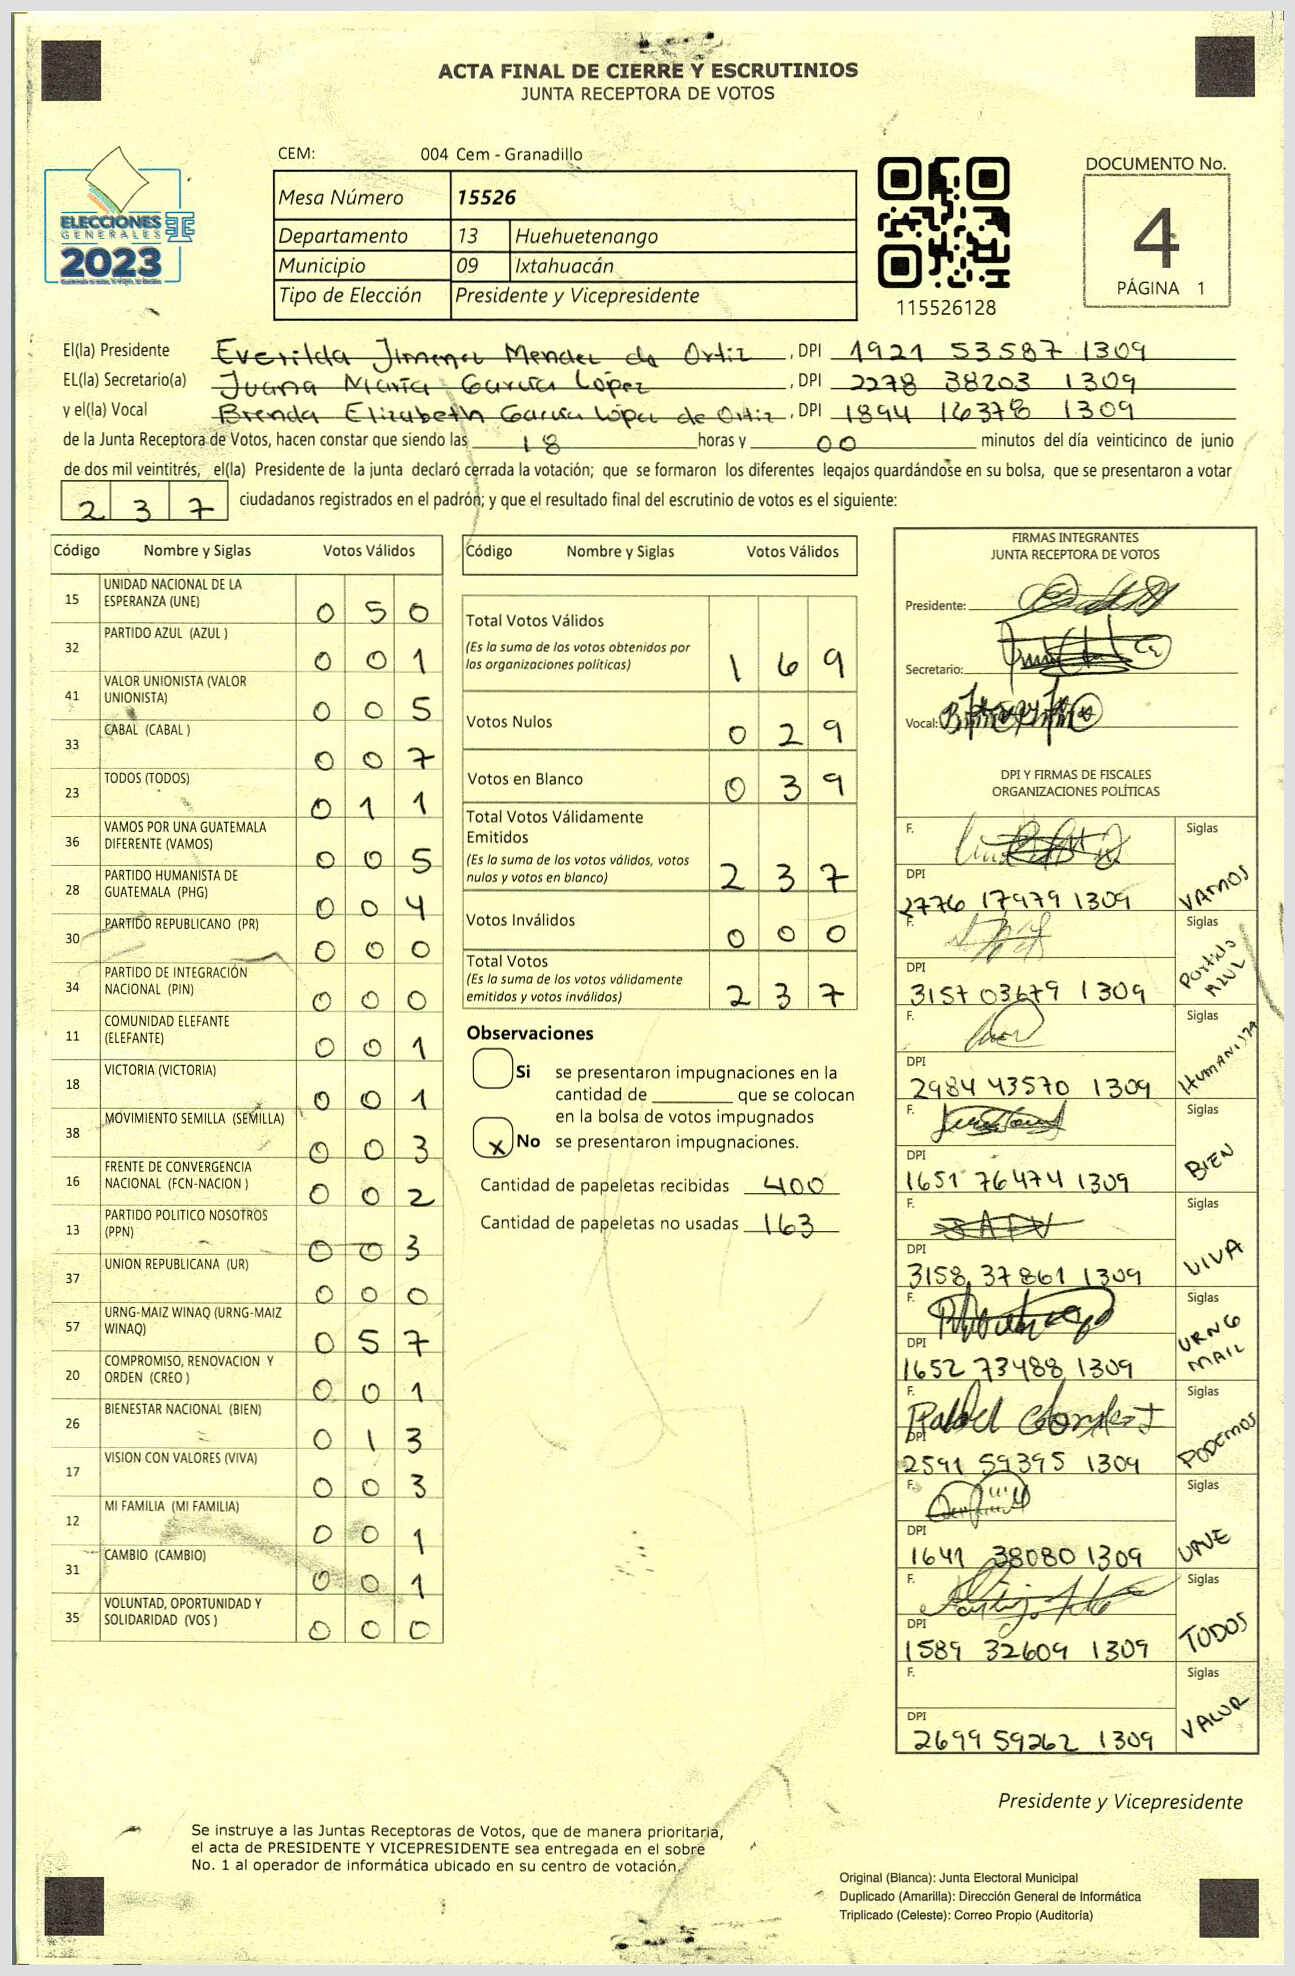 ACTA FINAL DE CIERRE Y ESCRUTINIOS
JUNTA RECEPTORA DE VOTOS
CEM: 004 Cem - Granadillo
Mesa Número 15526
Departamento 13 Huehuetenango
Municipio 09 Ixtahuacán
Tipo de Elección Presidente y Vicepresidente
ELECCIONES
GENERALES
2023
115526128
DOCUMENTO No.
4
PÁGINA 1
El(la) Presidente Everilda Jimenez Mendez de Ortiz, DPI 1921 53587 1309
EL(la) Secretario(a) Juana María García López, DPI 2278 38203 1309
y el(la) Vocal Brenda Elizabeth García López de Ortiz, DPI 1894 16378 1309
de la Junta Receptora de Votos, hacen constar que siendo las 18 horas y 00 minutos del día veinticinco de junio
de dos mil veintitrés, el(la) Presidente de la junta declaró cerrada la votación; que se formaron los diferentes legajos quardándose en su bolsa, que se presentaron a votar
237 ciudadanos registrados en el padrón; y que el resultado final del escrutinio de votos es el siguiente:
Código Nombre y Siglas Votos Válidos
15 UNIDAD NACIONAL DE LA
ESPERANZA (UNE) 0 5 0
32 PARTIDO AZUL (AZUL ) 0 0 1
41 VALOR UNIONISTA (VALOR
UNIONISTA) 0 0 5
33 CABAL (CABAL ) 0 0 7
23 TODOS (TODOS) 0 1 1
36 VAMOS POR UNA GUATEMALA
DIFERENTE (VAMOS) 0 0 5
28 PARTIDO HUMANISTA DE
GUATEMALA (PHG) 0 0 4
30 PARTIDO REPUBLICANO (PR) 0 0 0
34 PARTIDO DE INTEGRACIÓN
NACIONAL (PIN) 0 0 0
11 COMUNIDAD ELEFANTE
(ELEFANTE) 0 0 1
18 VICTORIA (VICTORIA) 0 0 1
38 MOVIMIENTO SEMILLA (SEMILLA) 0 0 3
16 FRENTE DE CONVERGENCIA
NACIONAL (FCN-NACION ) 0 0 2
13 PARTIDO POLITICO NOSOTROS
(PPN) 0 0 3
37 UNION REPUBLICANA (UR) 0 0 0
57 URNG-MAIZ WINAQ (URNG-MAIZ
WINAQ) 0 5 7
20 COMPROMISO, RENOVACION Y
ORDEN (CREO ) 0 0 1
26 BIENESTAR NACIONAL (BIEN) 0 1 3
17 VISION CON VALORES (VIVA) 0 0 3
12 MI FAMILIA (MI FAMILIA) 0 0 1
31 CAMBIO (CAMBIO) 0 0 1
35 VOLUNTAD, OPORTUNIDAD Y
SOLIDARIDAD (VOS ) 0 0 0
Código Nombre y Siglas Votos Válidos
Total Votos Válidos
(Es la suma de los votos obtenidos por
las organizaciones políticas) 1 6 9
Votos Nulos 0 2 9
Votos en Blanco 0 3 9
Total Votos Válidamente
Emitidos
(Es la suma de los votos válidos, votos
nulos y votos en blanco) 2 3 7
Votos Inválidos 0 0 0
Total Votos
(Es la suma de los votos válidamente
emitidos y votos inválidos) 2 3 7
Observaciones
Si se presentaron impugnaciones en la
cantidad de ________ que se colocan
en la bolsa de votos impugnados
x No se presentaron impugnaciones.
Cantidad de papeletas recibidas 400
Cantidad de papeletas no usadas 163
FIRMAS INTEGRANTES
JUNTA RECEPTORA DE VOTOS
Presidente:
Secretario:
Vocal:
DPI Y FIRMAS DE FISCALES
ORGANIZACIONES POLÍTICAS
F. Siglas
DPI
2776 17979 1309 VAMOS
F. Siglas
DPI
3157 03679 1309 Partido AZUL
F. Siglas
DPI
2984 43570 1309 HUMANISTA
F. Siglas
DPI
1651 76474 1309 BIEN
F. Siglas
DPI
3158 37861 1309 VIVA
F. Siglas
DPI
1652 73488 1309 URNG MAIL
F. Siglas
DPI
2591 59395 1309 PODEMOS
F. Siglas
DPI
1641 38080 1309 UNE
F. Siglas
DPI
1589 32609 1309 TODOS
F. Siglas
DPI
2699 59262 1309 VALOR
Presidente y Vicepresidente
Se instruye a las Juntas Receptoras de Votos, que de manera prioritaria,
el acta de PRESIDENTE Y VICEPRESIDENTE sea entregada en el sobre
No. 1 al operador de informática ubicado en su centro de votación.
Original (Blanca): Junta Electoral Municipal
Duplicado (Amarilla): Dirección General de Informática
Triplicado (Celeste): Correo Propio (Auditoría)